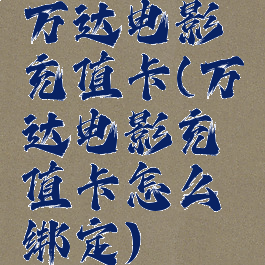 万达电影
充值卡(万
达电影充
值卡怎么
绑定)